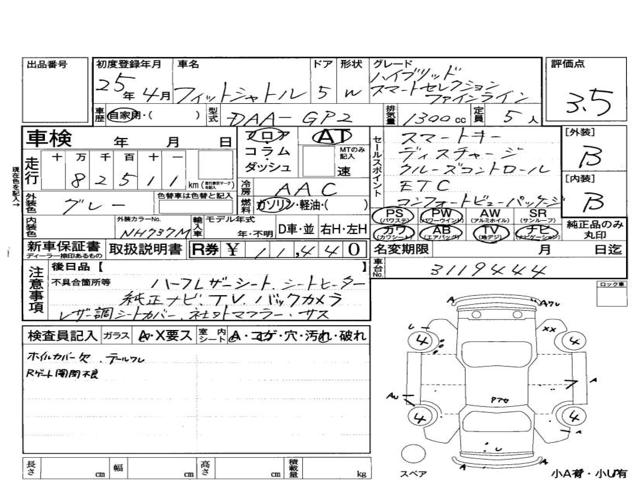 出品番号 初度登録年月 車名 ドア 形状 グレード 評価点
25年 4月 フィットシャトル 5 W ハイブリッド
スマートセレクション
ファインライン 3.5
車歴 自家用・( ) 型式 DAA-GP2 排気量 1300cc 定員 5人
車検 年 月 日 フロア AT セールスポイント スマートキー [外装]
コラム MTのみ記入 ディスチャージ B
走行 十 万 千 百 十 一 ダッシュ 速 クルーズコントロール
8 2 5 1 1 km 冷房 AAC ETC [内装]
外装色 グレー 色替車は色替と記入 燃料 ガソリン・軽油・( ) コンフォートビューパッケージ B
現在色を記入→
内装色 外装カラーNo. NH737M 輸入車 モデル年式 年・不明 D車・並 右H・左H
PS (パワステ) PW (パワーウインド) AW (アルミホイル) SR (サンルーフ) 純正品のみ丸印
カワ (カワシート) AB (エアバッグ) TV (地デジ) ナビ (ナビゲーション)
新車保証書 ディーラー捺印あるもの 取扱説明書 R券 ¥ 11,440 名変期限 月 日迄
車台No. 3119444
注意事項 後日品【 】
不具合箇所等 ハーフレザーシート、シートヒーター
純正ナビ、TV、バックカメラ
レザ調シートカバー、社外マフラー・サス
ロック車
検査員記入 ガラス A・X要ス 室内シート A・コゲ・穴・汚れ・破れ
ホイルカバー欠、テールワレ
Rゲート開閉不良
A
U
XX
4 4
A
4 4
A
U
スペア
長さ cm 幅 cm 高さ cm 積載量 kg
小A有・小U有